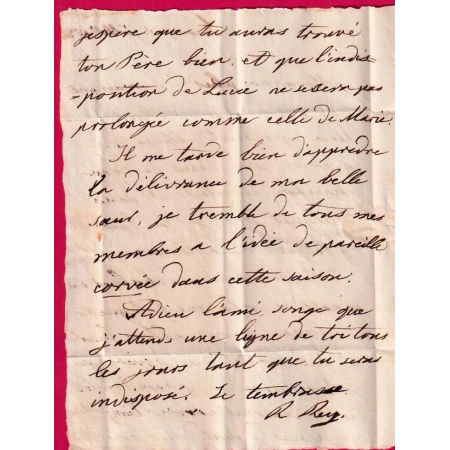 j'espère que tu auras trouvé
ton Père bien, et que l'indis-
-position de Lucie ne sesera pas
prolongée comme celle de Marie.
Il me tarde bien d'appredre
la délivrance de ma belle
sœur, je tremble de tous mes
membres a l'idée de pareille
corvée dans cette saison.
Adieu l'ami, songe que
j'attends une ligne de toi tous
les jours tant que tu seras
indisposé. Je t'embrasse
R Rey.